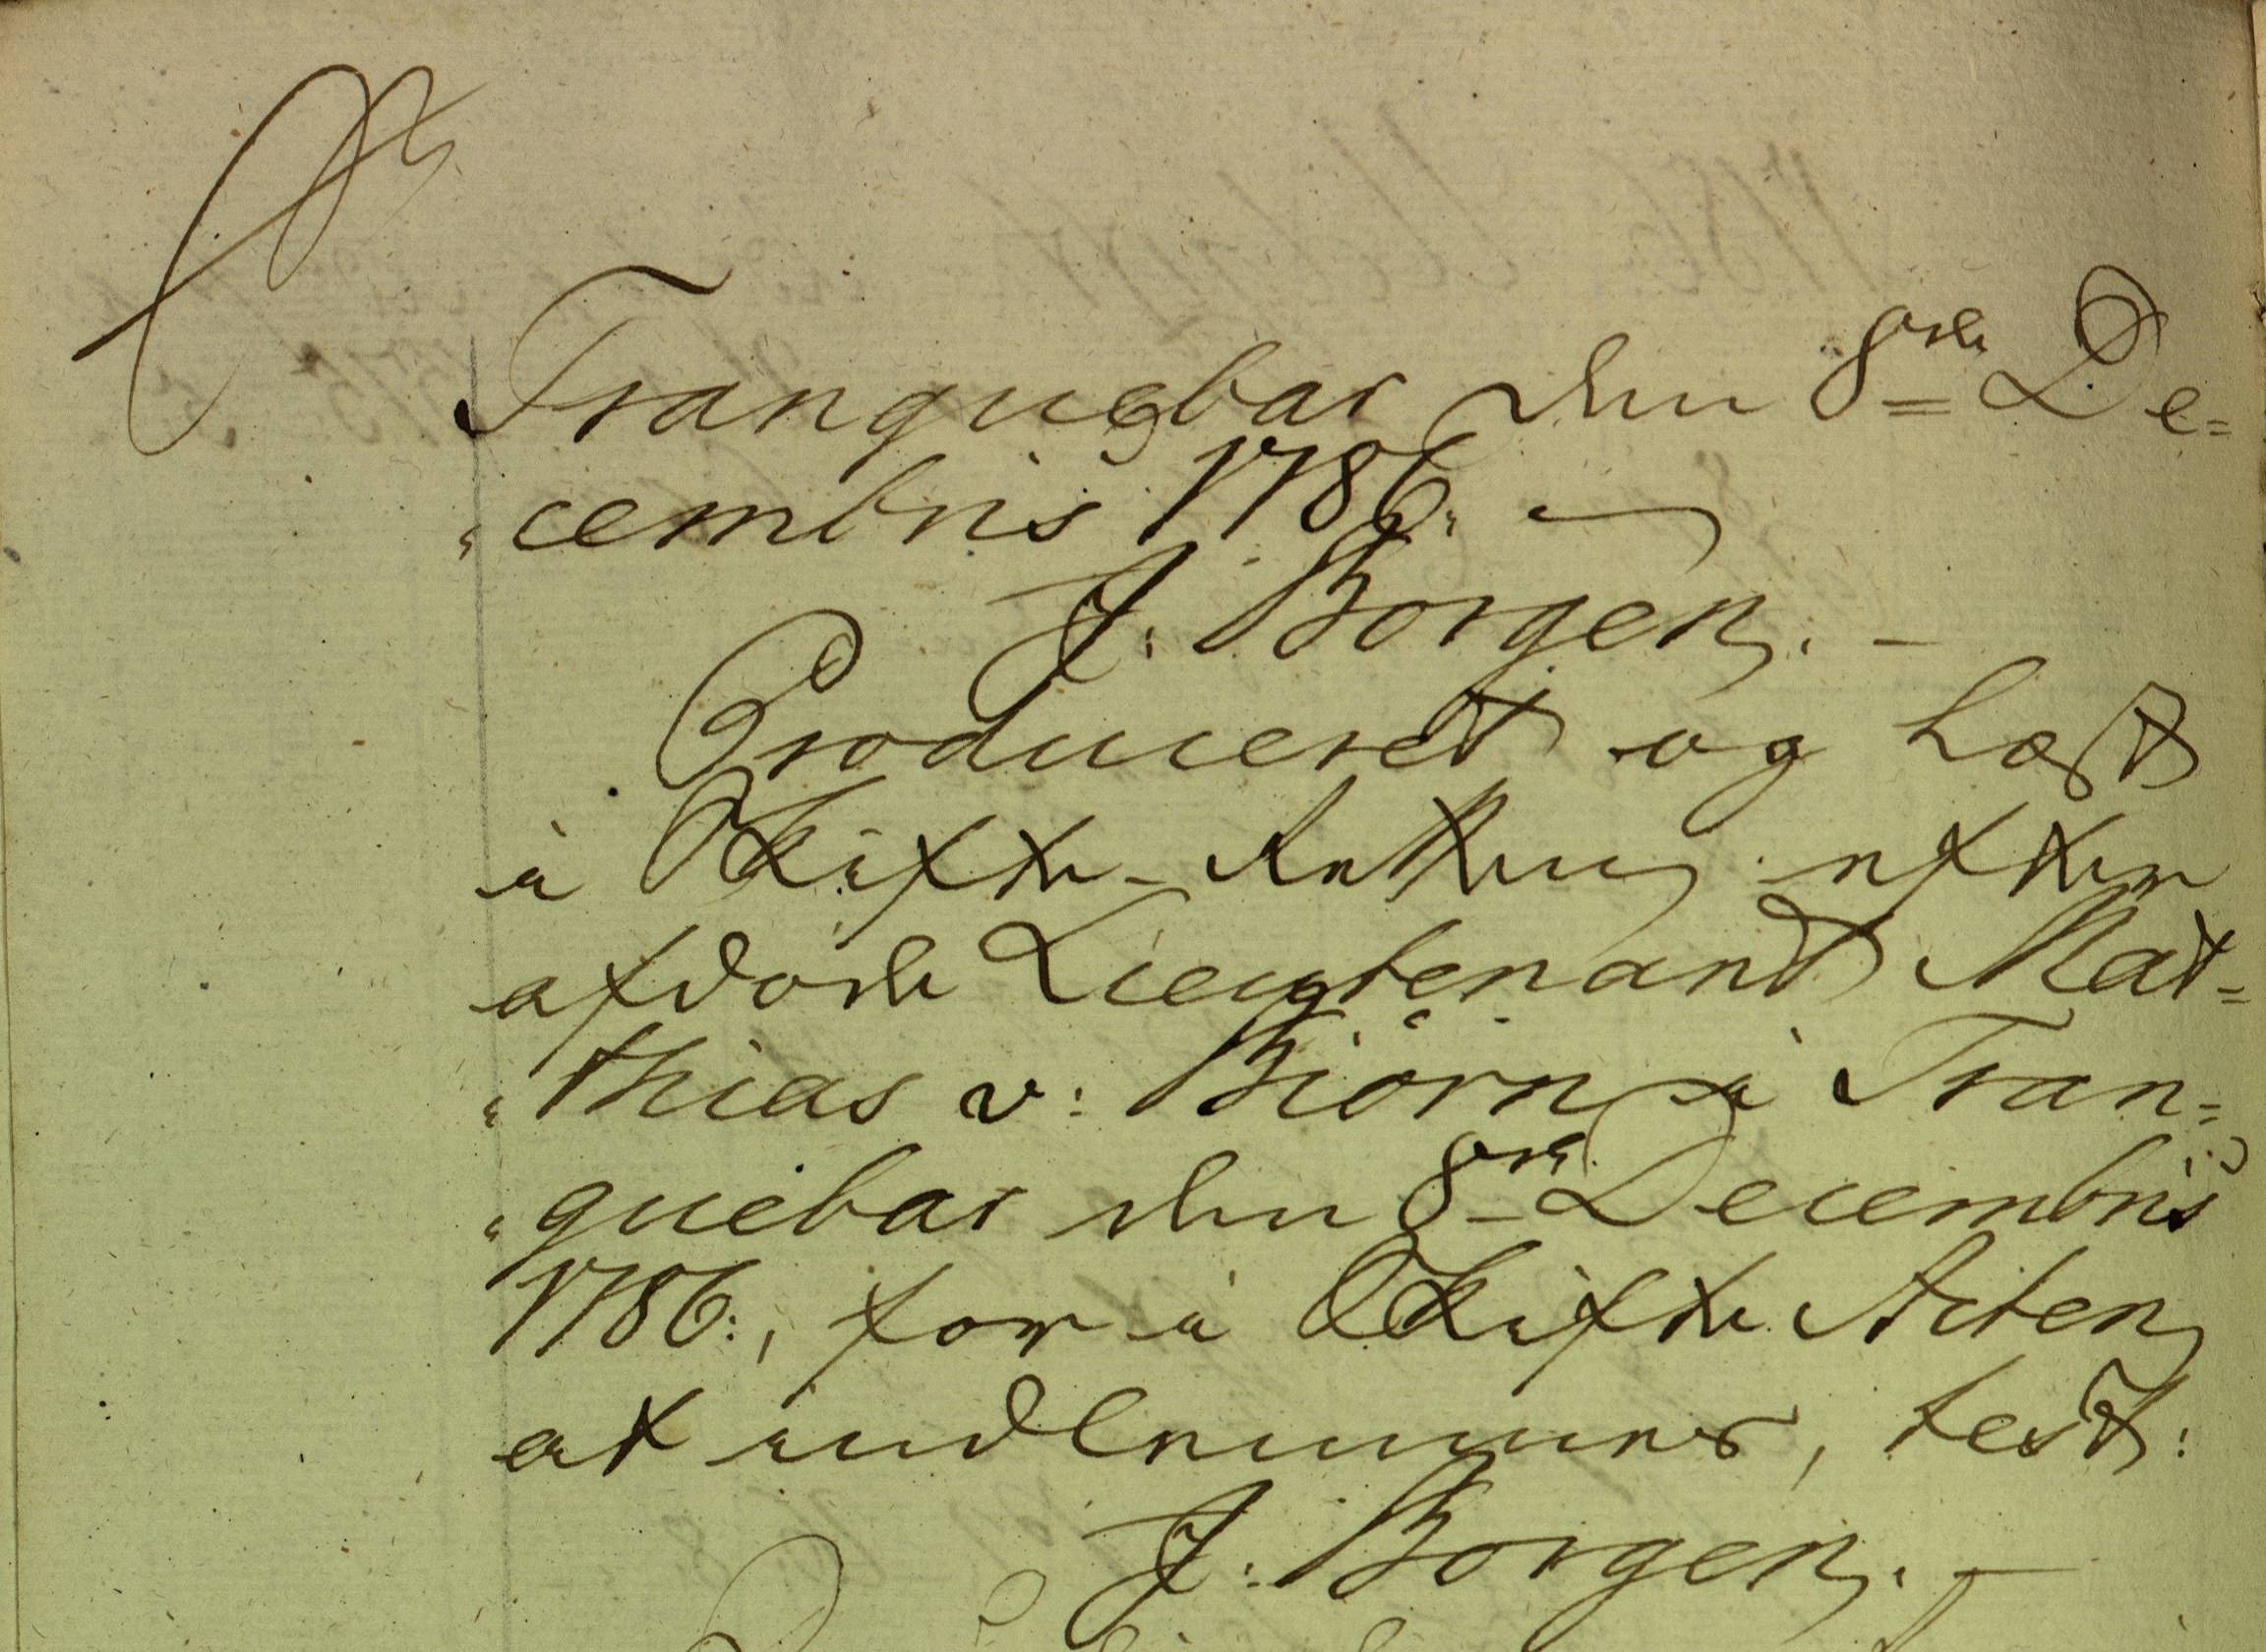 Tranquebar den 8de De=
"cembris 1786. —
J: Borgen. —
Produceret og Læst
i Skifte-Retten efter
afdöde Lieutenant Mat=
"thias v: Biörn i Tran=
"quebar den 8de Decembris
1786:, for i Skifte Acten
at indlemmes, test:
J: Borgen. —